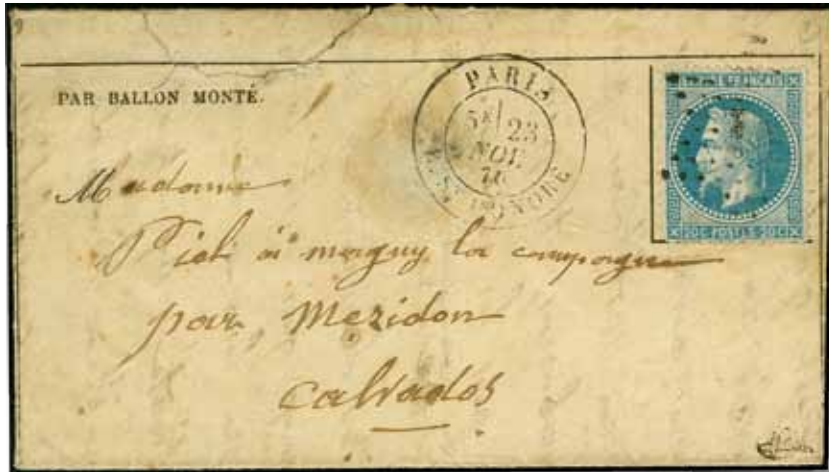 PAR BALLON MONTÉ.
PARIS
5E 23
NOV.
70
R. ST HONORÉ
EMPIRE FRANÇAIS
20 C POSTES 20 C
Madame
à magny la campagne
par Mezidon
Calvados